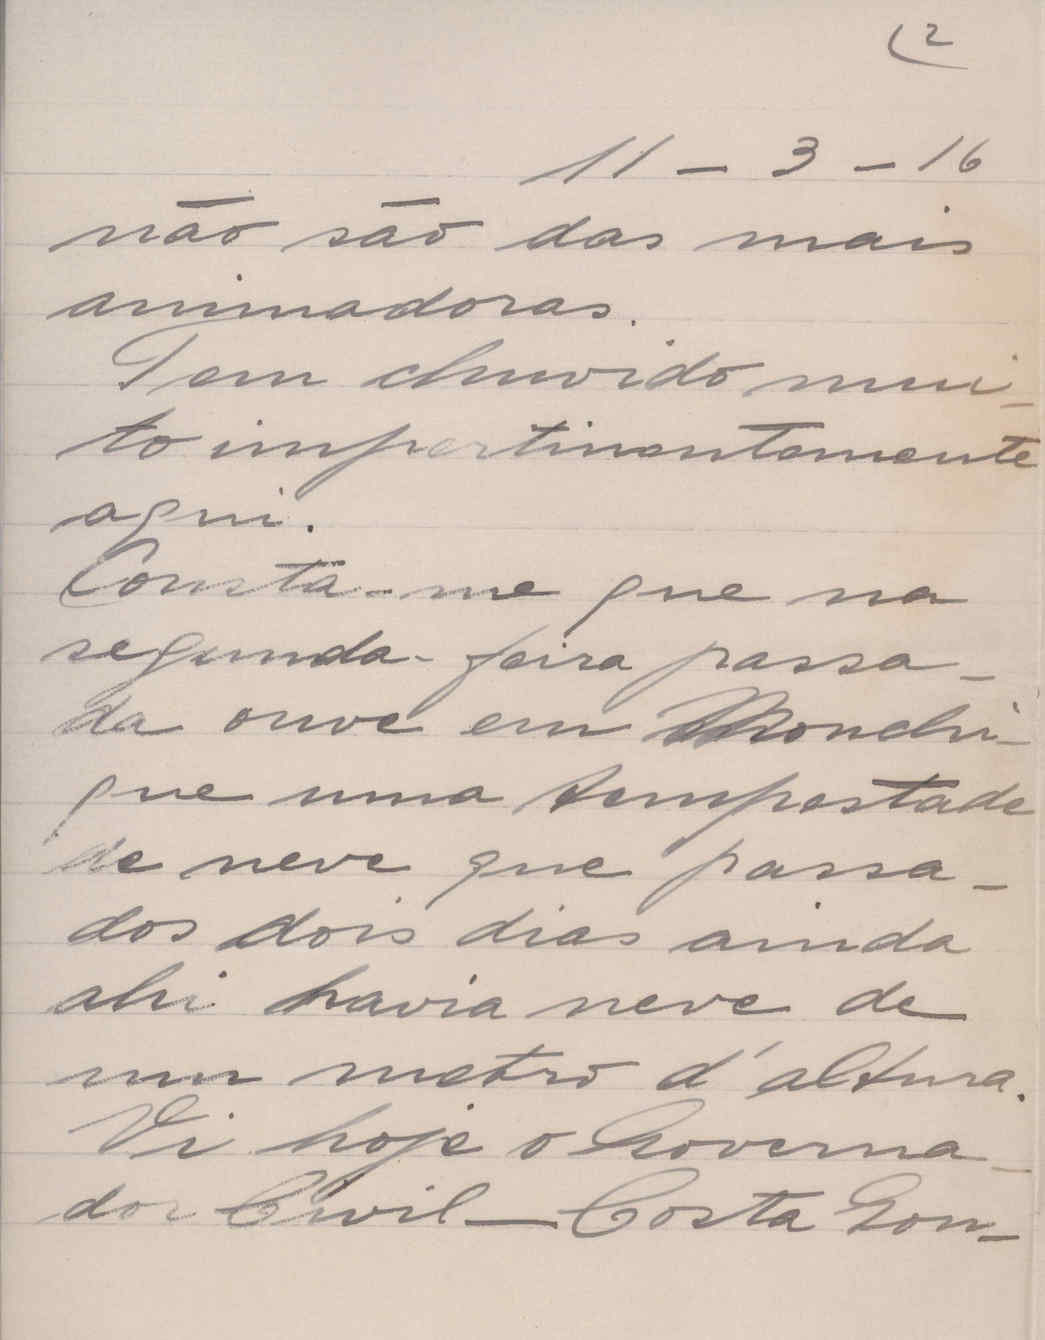 (2
11 - 3 - 16
não são das mais
animadoras.
Tem chuvido mui-
to impertinentemente
aqui.
Consta-me que na
segunda-feira passa-
da ouve em Monchi-
que uma tempestade
de neve que passa-
dos dois dias ainda
ahi havia neve de
um metro d'altura.
Vi hoje o Governa-
dor Civil — Costa Gon-